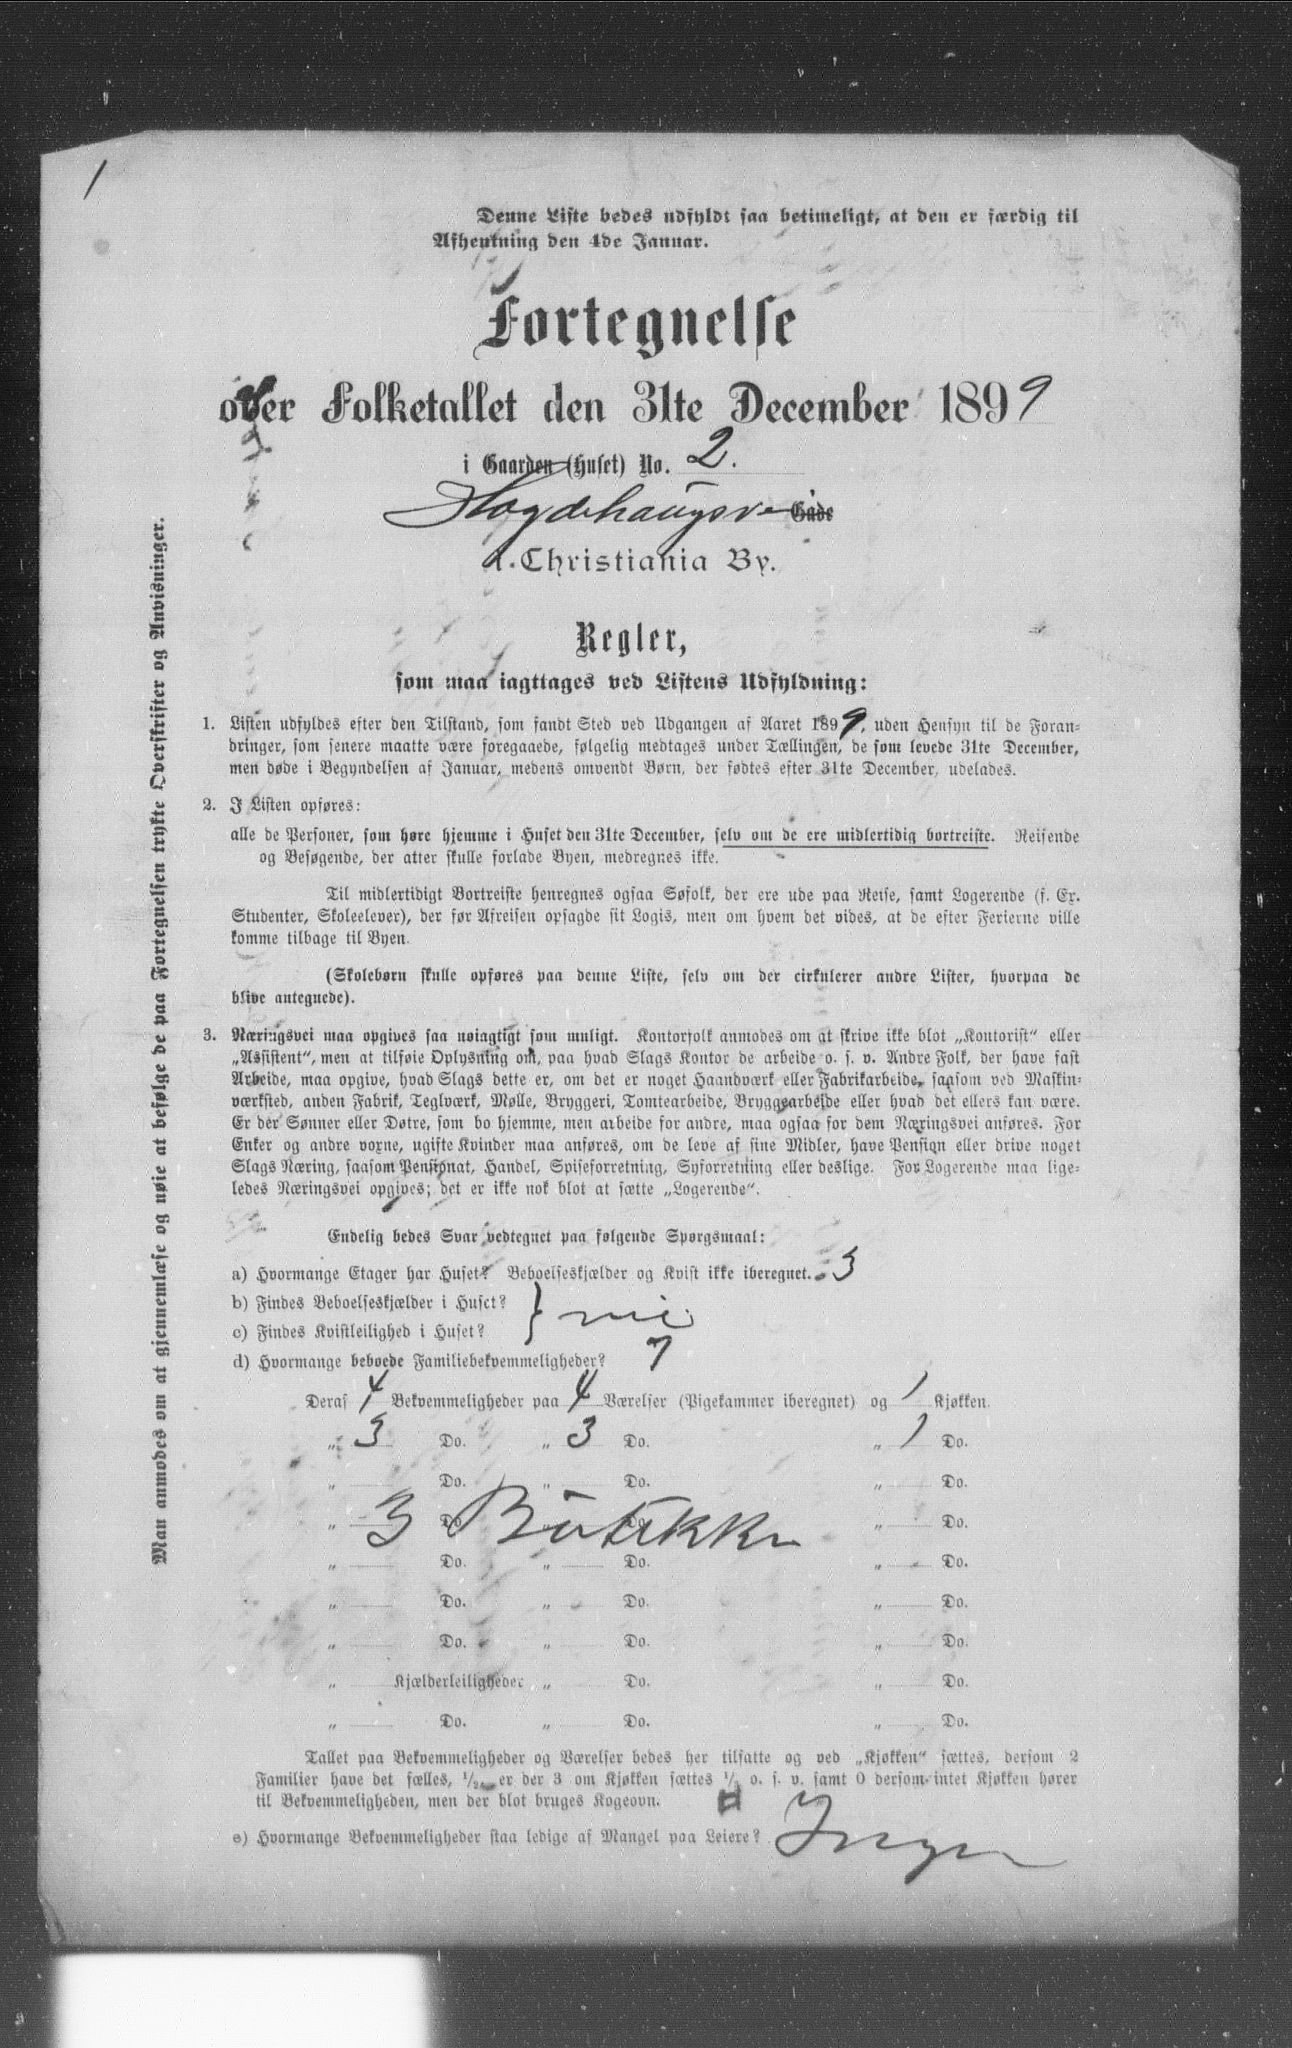 1
Denne Liste bedes udfyldt saa betimeligt, at den er færdig til
Afhentning den 4de Januar.
Fortegnelse
over Folketallet den 31te December 1899
i Gaarden (Huset) No. 2.
Hægdehaugsv. Gade
i Christiania By.
Regler,
som maa iagttages ved Listens Udfyldning:
1. Listen udfyldes efter den Tilstand, som fandt Sted ved Udgangen af Aaret 1899, uden Hensyn til de Foran-
dringer, som senere maatte være foregaaede, følgelig medtages under Tællingen, de som levede 31te December,
men døde i Begyndelsen af Januar, medens omvendt Børn, der fødtes efter 31te December, udelades.
2. I Listen opføres:
alle de Personer, som høre hjemme i Huset den 31te December, selv om de ere midlertidig bortreiste. Reisende
og Besøgende, der atter skulle forlade Byen, medregnes ikke.
Til midlertidigt Bortreiste henregnes ogsaa Søfolk, der ere ude paa Reise, samt Logerende (f. Ex.
Studenter, Skoleelever), der før Afreisen opsagde sit Logis, men om hvem det vides, at de efter Ferierne ville
komme tilbage til Byen.
(Skolebørn skulle opføres paa denne Liste, selv om der cirkulerer andre Lister, hvorpaa de
blive antegnede).
3. Næringsvei maa opgives saa nøiagtigt som muligt. Kontorfolk anmodes om at skrive ikke blot „Kontorist“ eller
„Assistent“, men at tilføie Oplysning om, paa hvad Slags Kontor de arbeide o. s. v. Andre Folk, der have fast
Arbeide, maa opgive, hvad Slags dette er, om det er noget Haandværk eller Fabrikarbeide, saasom ved Maskin-
værksted, anden Fabrik, Teglværk, Mølle, Bryggeri, Tomtearbeide, Bryggearbeide eller hvad det ellers kan være.
Er der Sønner eller Døtre, som bo hjemme, men arbeide for andre, maa ogsaa for dem Næringsvei anføres. For
Enker og andre voxne, ugifte Kvinder maa anføres, om de leve af sine Midler, have Pension eller drive noget
Slags Næring, saasom Pensionat, Handel, Spiseforretning, Syforretning eller deslige. For Logerende maa lige-
ledes Næringsvei opgives; det er ikke nok blot at sætte „Logerende“.
Endelig bedes Svar vedtegnet paa følgende Spørgsmaal:
a) Hvormange Etager har Huset? Beboelseskjælder og Kvist ikke iberegnet. 3
b) Findes Beboelseskjælder i Huset?
c) Findes Kvistleilighed i Huset? } nei
d) Hvormange beboede Familiebekvemmeligheder? 7
Deraf 4 Bekvemmeligheder paa 4 Værelser (Pigekammer iberegnet) og 1 Kjøkken.
„ 3 Do. „ 3 Do. „ 1 Do.
„ Do. „ Do. „ Do.
„ 3 Do. Butikker „ Do. „ Do.
„ Do. „ Do. „ Do.
„ Do. „ Do. „ Do.
„ Do. „ Do. „ Do.
„ Kjælderleiligheder „ Do. „ Do.
„ Do. „ Do. „ Do.
Tallet paa Bekvemmeligheder og Værelser bedes her tilsatte og ved „Kjøkken“ sættes, dersom 2
Familier have det fælles, 1/2, er der 3 om Kjøkken sættes 1/3 o. s. v. samt 0 dersom intet Kjøkken hører
til Bekvemmeligheden, men der blot bruges Kogeovn.
e) Hvormange Bekvemmeligheder staa ledige af Mangel paa Leiere? Ingen
Man anmodes om at gjennemlæse og nøie at befølge de paa Fortegnelsen trykte Overskrifter og Anvisninger.